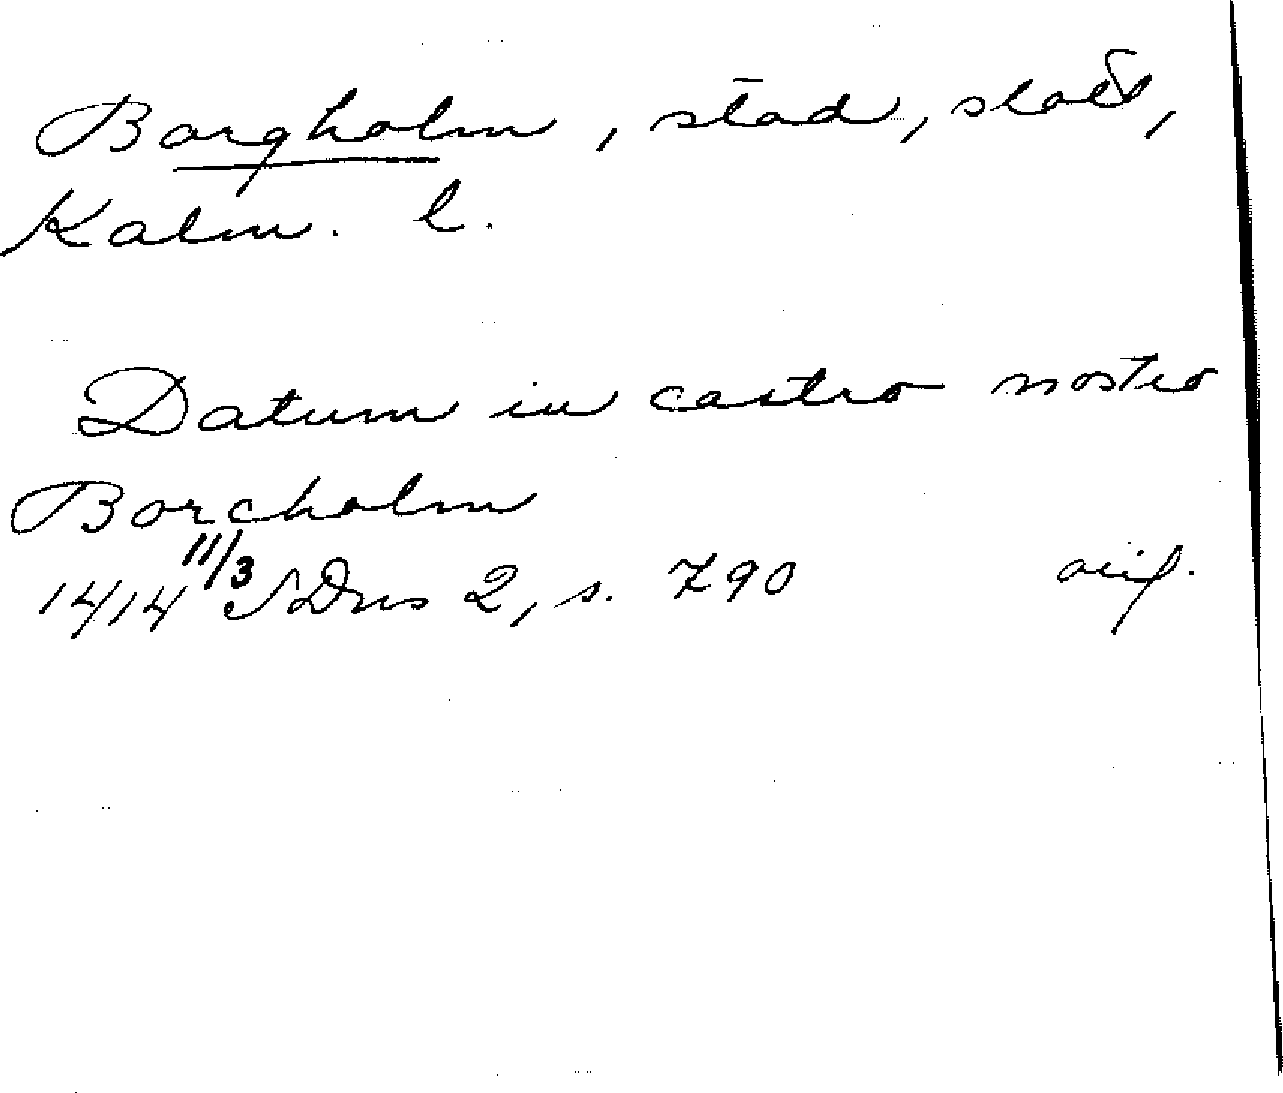 Borgholm, stad, slott,
Kalm. l.
Datum in castro nostro
Borcholm
1414 11/3 SDns 2, s. 790 orig.